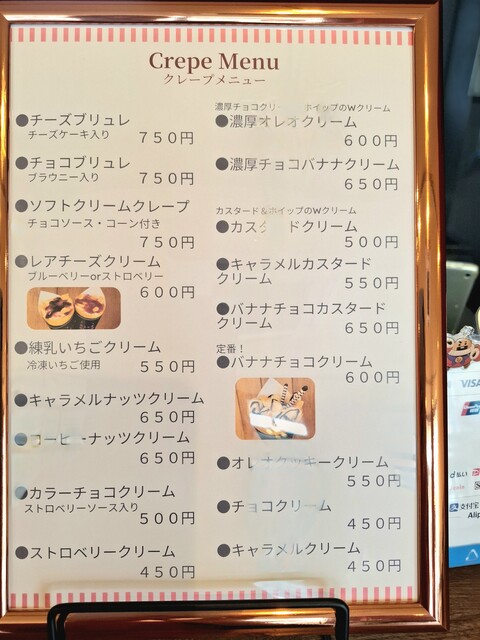 Crepe Menu
クレープメニュー
●チーズブリュレ
チーズケーキ入り 750円
●チョコブリュレ
ブラウニー入り 750円
●ソフトクリームクレープ
チョコソース・コーン付き
750円
●レアチーズクリーム
ブルーベリーorストロベリー
600円
●練乳いちごクリーム
冷凍いちご使用 550円
●キャラメルナッツクリーム
650円
ナッツクリーム
650円
●カラーチョコクリーム
ストロベリーソース入り
500円
●ストロベリークリーム
450円
濃厚チョコクリ ホイップのWクリーム
●濃厚オレオクリーム
600円
●濃厚チョコバナナクリーム
650円
カスタード&ホイップのWクリーム
●カスタードクリーム
500円
●キャラメルカスタード
クリーム 550円
●バナナチョコカスタード
クリーム 650円
定番!
●バナナチョコクリーム
600円
クリーム
550円
●チョコクリーム
450円
●キャラメルクリーム
450円
VISA
d払い
支付宝
Alip